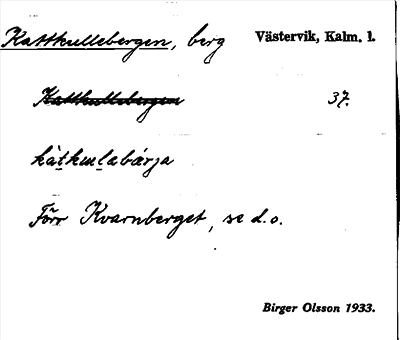 Kattkullebergen, berg Västervik, Kalm. l.
Kattkullebergen 37.
kàt̠kul̠abárja
Förr Kvarnberget, se d.o.
Birger Olsson 1933.